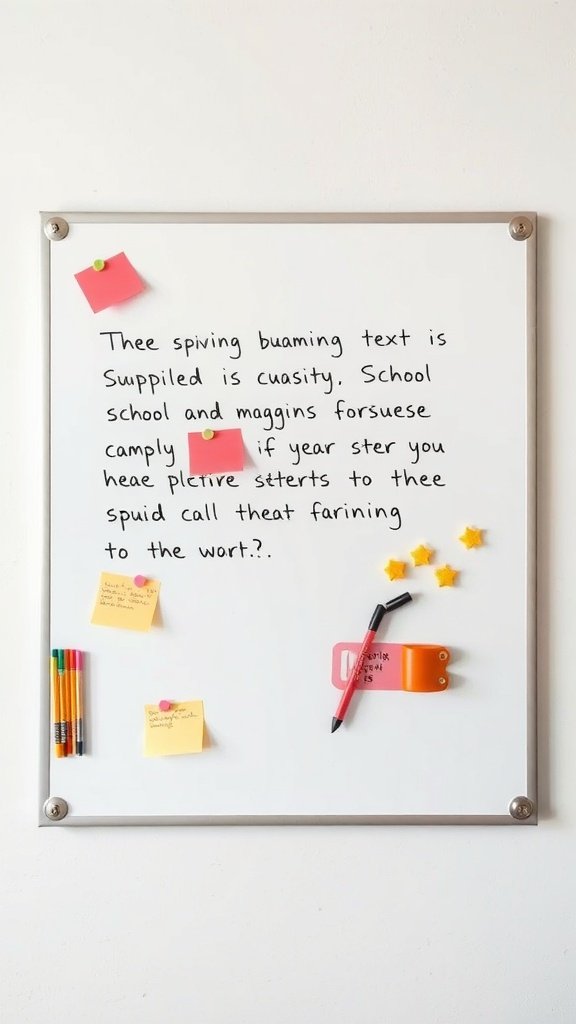 Thee spiving buaming text is
Suppiled is cuasity. School
school and maggins forsuese
camply if year ster you
heae plctive stterts to thee
spuid call theat farining
to the wart.?.